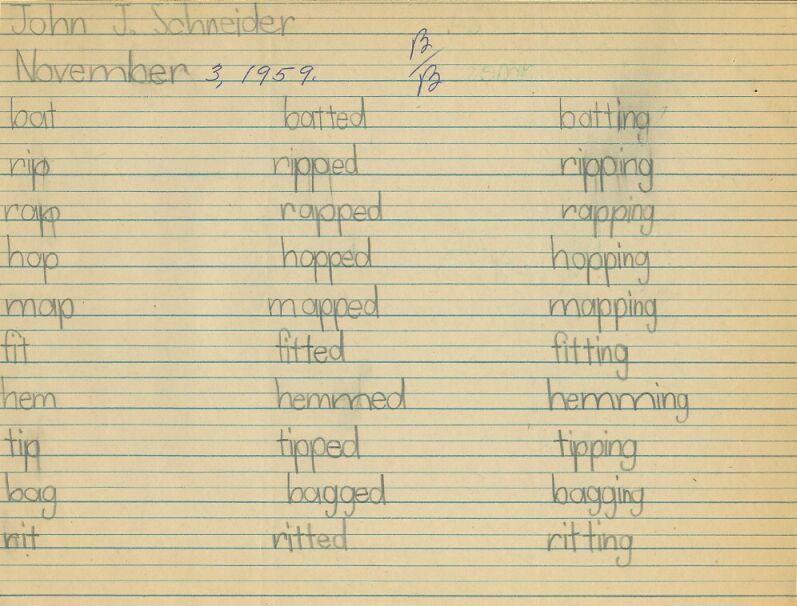 John J. Schneider
November 3, 1959. B/B
bat batted batting
rip ripped ripping
rap rapped rapping
hop hopped hopping
map mapped mapping
fit fitted fitting
hem hemmed hemming
tip tipped tipping
bag bagged bagging
ritted ritting